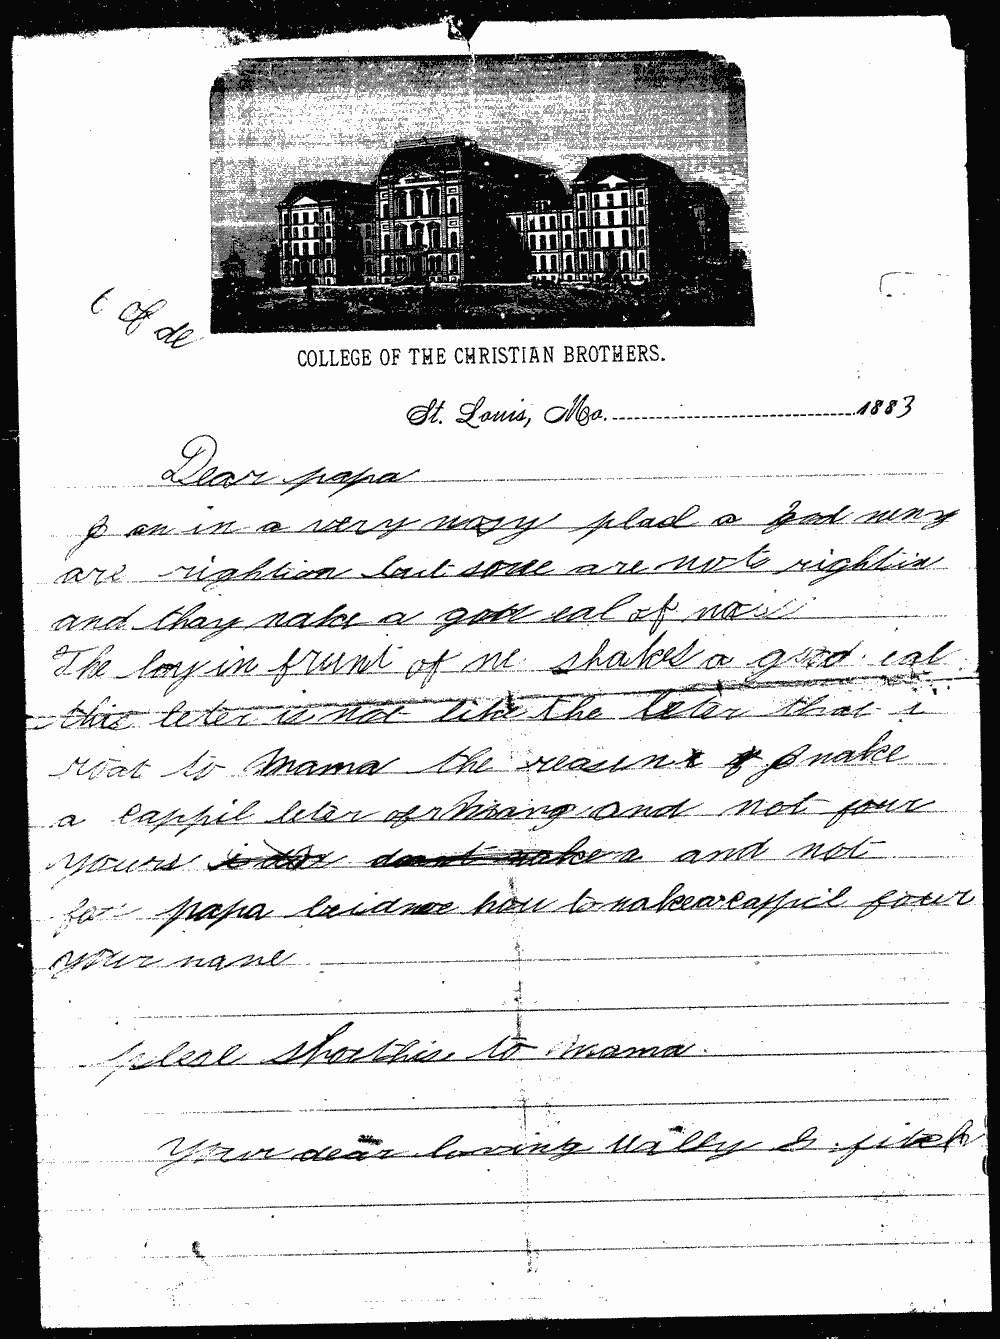 t of de
COLLEGE OF THE CHRISTIAN BROTHERS.
St. Louis, Mo. 1883
Dear papa
I an in a very nosy plad a good meny
are rightion but some are not rightin
and thay nake a good eal of
The boy in frunt of ne shakes a good eal
this leter is not like the leter that i
roat to Mama the reasen I nake
a cappil leter of Mama and not four
yours and not
for papa how to nake a cappil four
your nane
pleal shoe this to Mama
Your dear loving Willy S. fitch